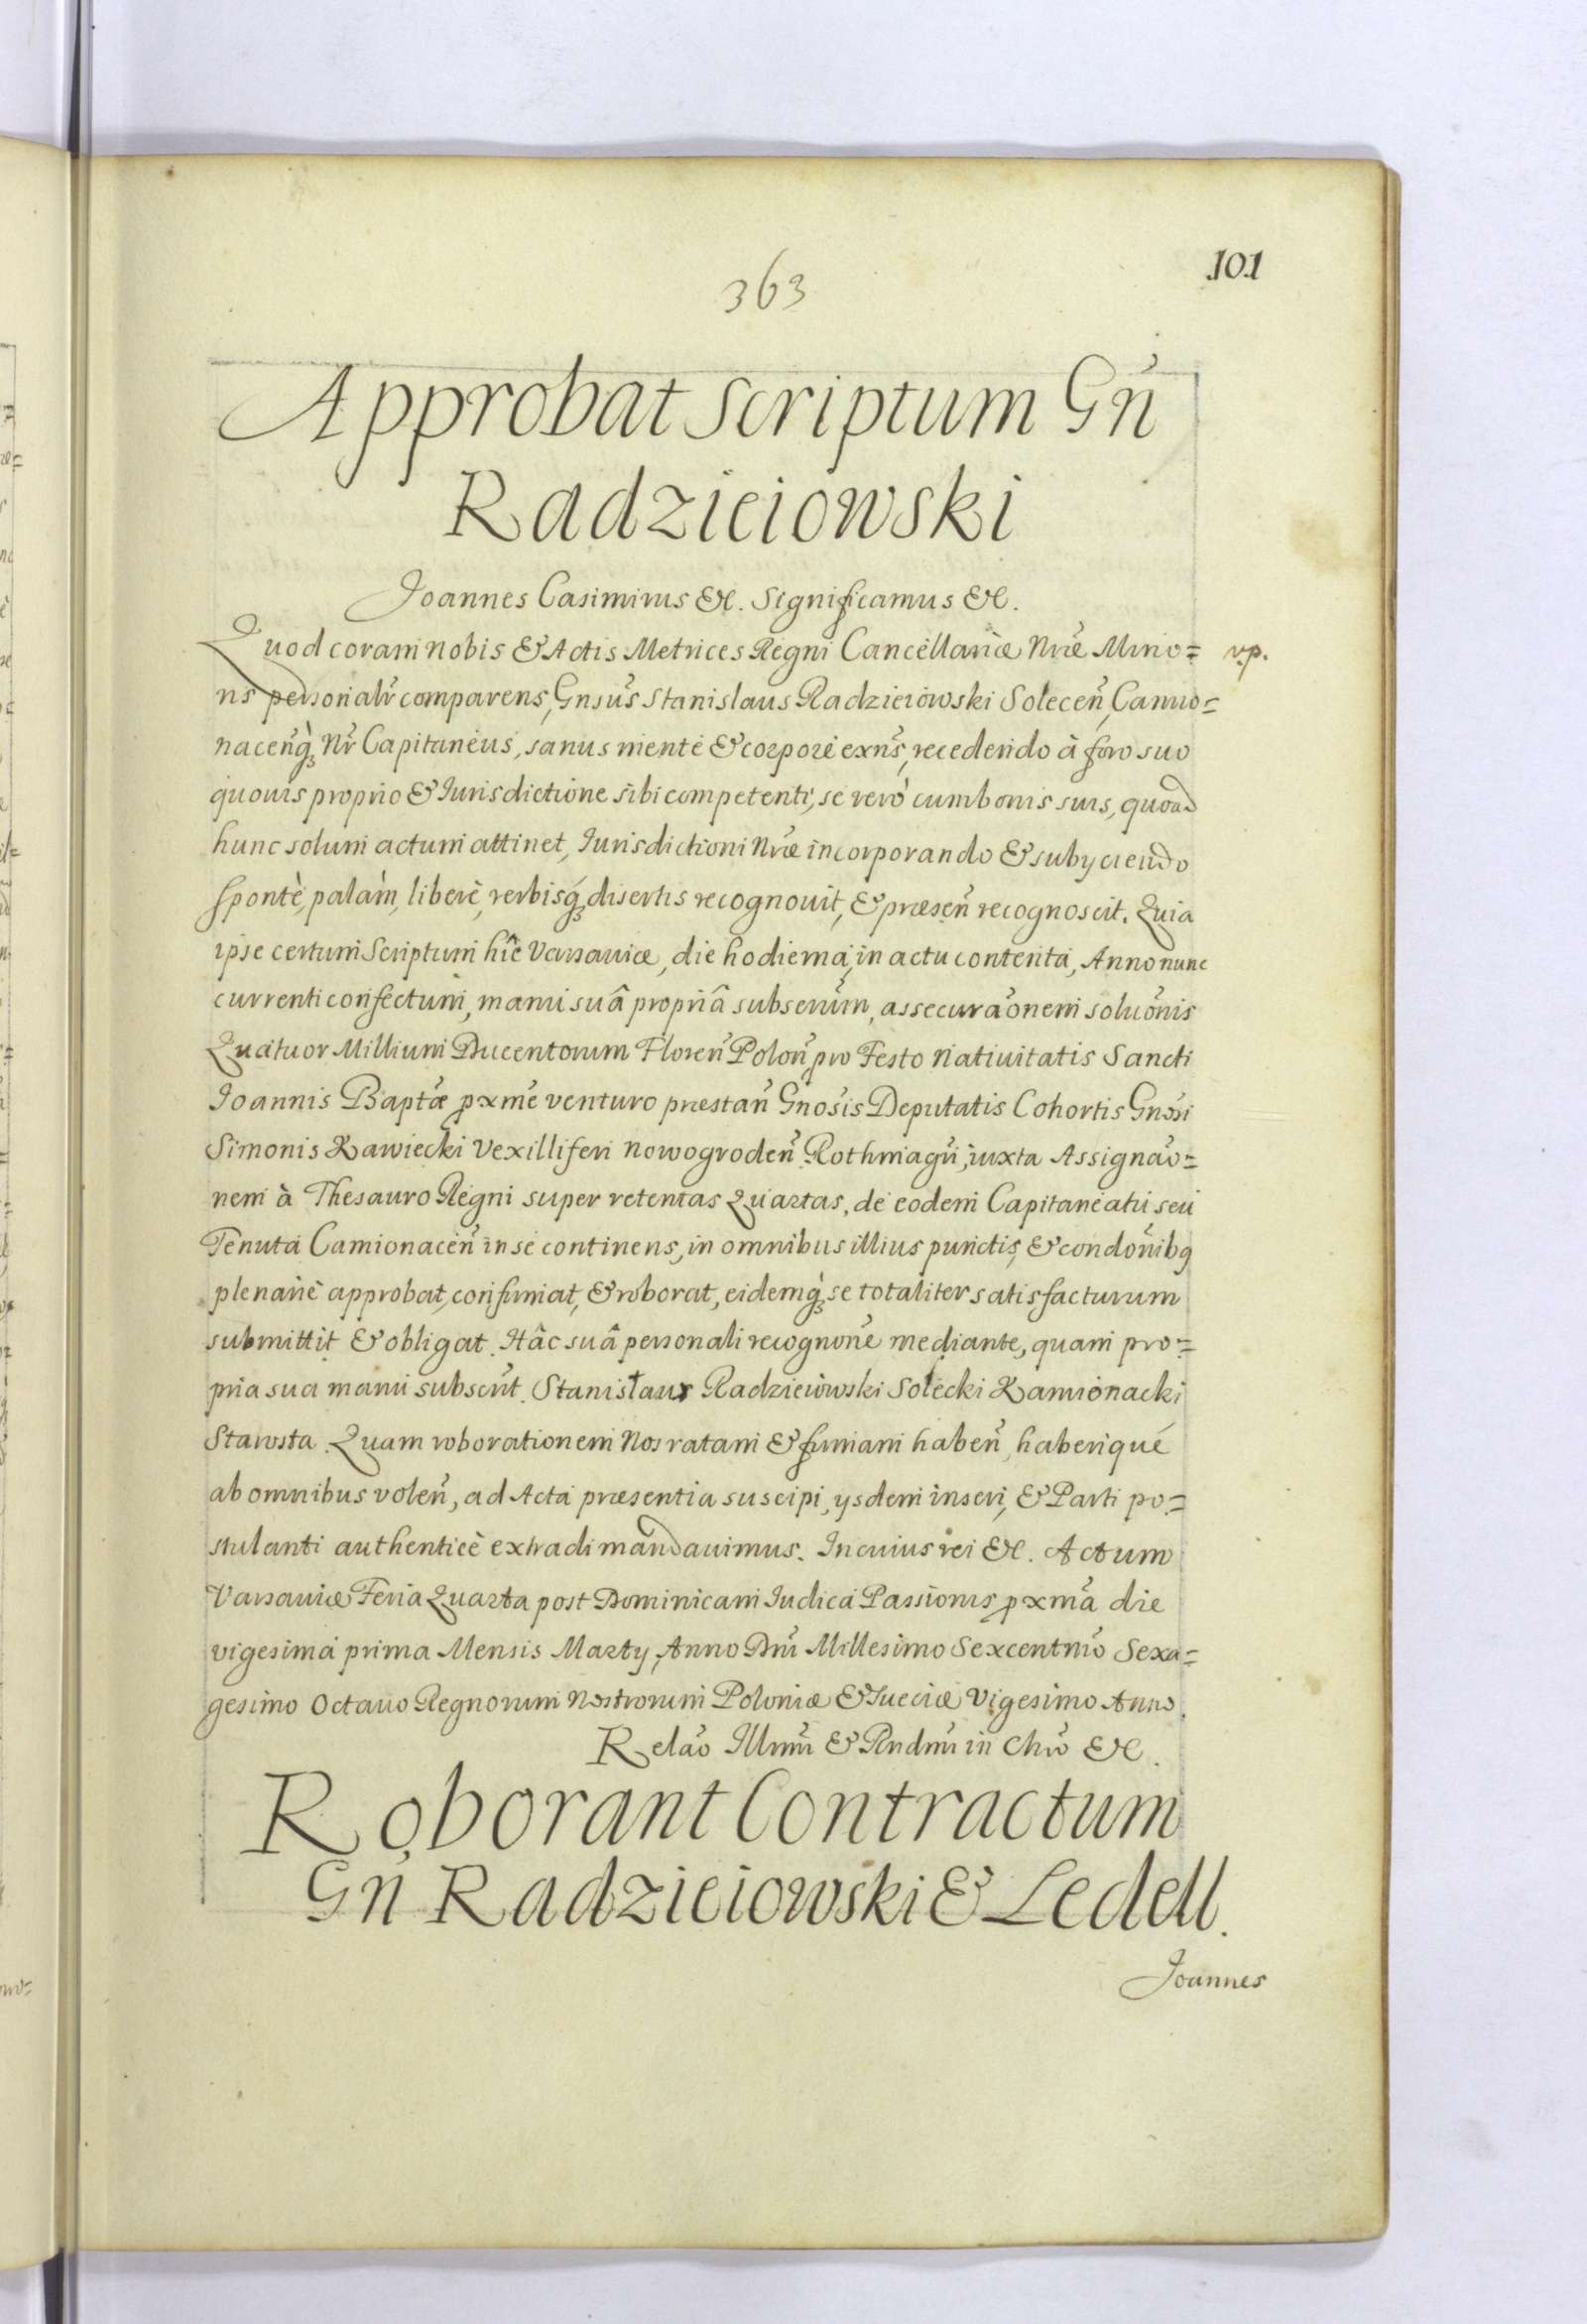 101
363
Approbat Scriptum Gn̄
Radzieiowski
Joannes Casimirus &c. Significamus &c.
Quod coram nobis & Actis Metrices Regni Cancellariæ Nr̃æ Mino=
v.p.
ris personalr̃ comparens, Gnsũs Stanislaus Radzieiowski Solecen̄, Camio=
nacen̄q̀ꝫ Nr̃ Capitaneus, sanus mente & corpore exñs, recedendo à foro suo
quouis proprio & Iurisdictione sibi competenti, se verò cum bonis suis, quoad
hunc solum actum attinet, Iurisdictioni Nr̃æ incorporando & subyciendo
spontè, palàm, liberè, verbisq́ꝫ disertis recognouit, & præsen̄ recognoscit. Quia
ipse certum Scriptum hîc Varsauiæ, die hodierna, in actu contenta, Anno nunc
currenti confectum, manu suâ propriâ subscr̃um, assecuraõnem soluõnis
Quatuor Millium Ducentorum Floren̄ Polon̄ pro Festo Natiuitatis Sancti
Ioannis Baptæ̃ pxmẽ venturo præstan̄ Gnosĩs Deputatis Cohortis Gnosĩ
Simonis Kawiecki Vexilliferi Nowogroden̄ Rothmagr̃i, iuxta Assignaõ=
nem à Thesauro Regni super retentas Quartas, de eodem Capitaneatu seu
Tenuta Camionacen̄ in se continens, in omnibus illius punctis, & condõnibq
plenariè approbat, confirmat, & roborat, eidemq̀ꝫ se totaliter satisfacturum
submittit & obligat. Hâc suâ personali recognonẽ mediante, quam pro=
pria sua manu subscr̃it. Stanisław Radzieiowski Solecki Kamionacki
Starosta. Quam roborationem Nos ratam & firmam haben̄, haberiqué
ab omnibus volen̄, ad Acta præsentia suscipi, ysdem inseri, & Parti po=
stulanti authenticè extradi mandauimus. In cuius rei &c. Actum
Varsauiæ Feria Quarta post Dominicam Iudica Passionis pxmã die
vigesima prima Mensis Marty, Anno Dñi Millesimo Sexcentmõ Sexa=
gesimo Octauo Regnorum Nostrorum Poloniæ & Sueciæ Vigesimo Anno.
Relaõ Illmi̇̃ & Rndmĩ in Chrõ &c.
Roborant Contractum
Gn̄ Radzieiowski & Ledell.
Joannes